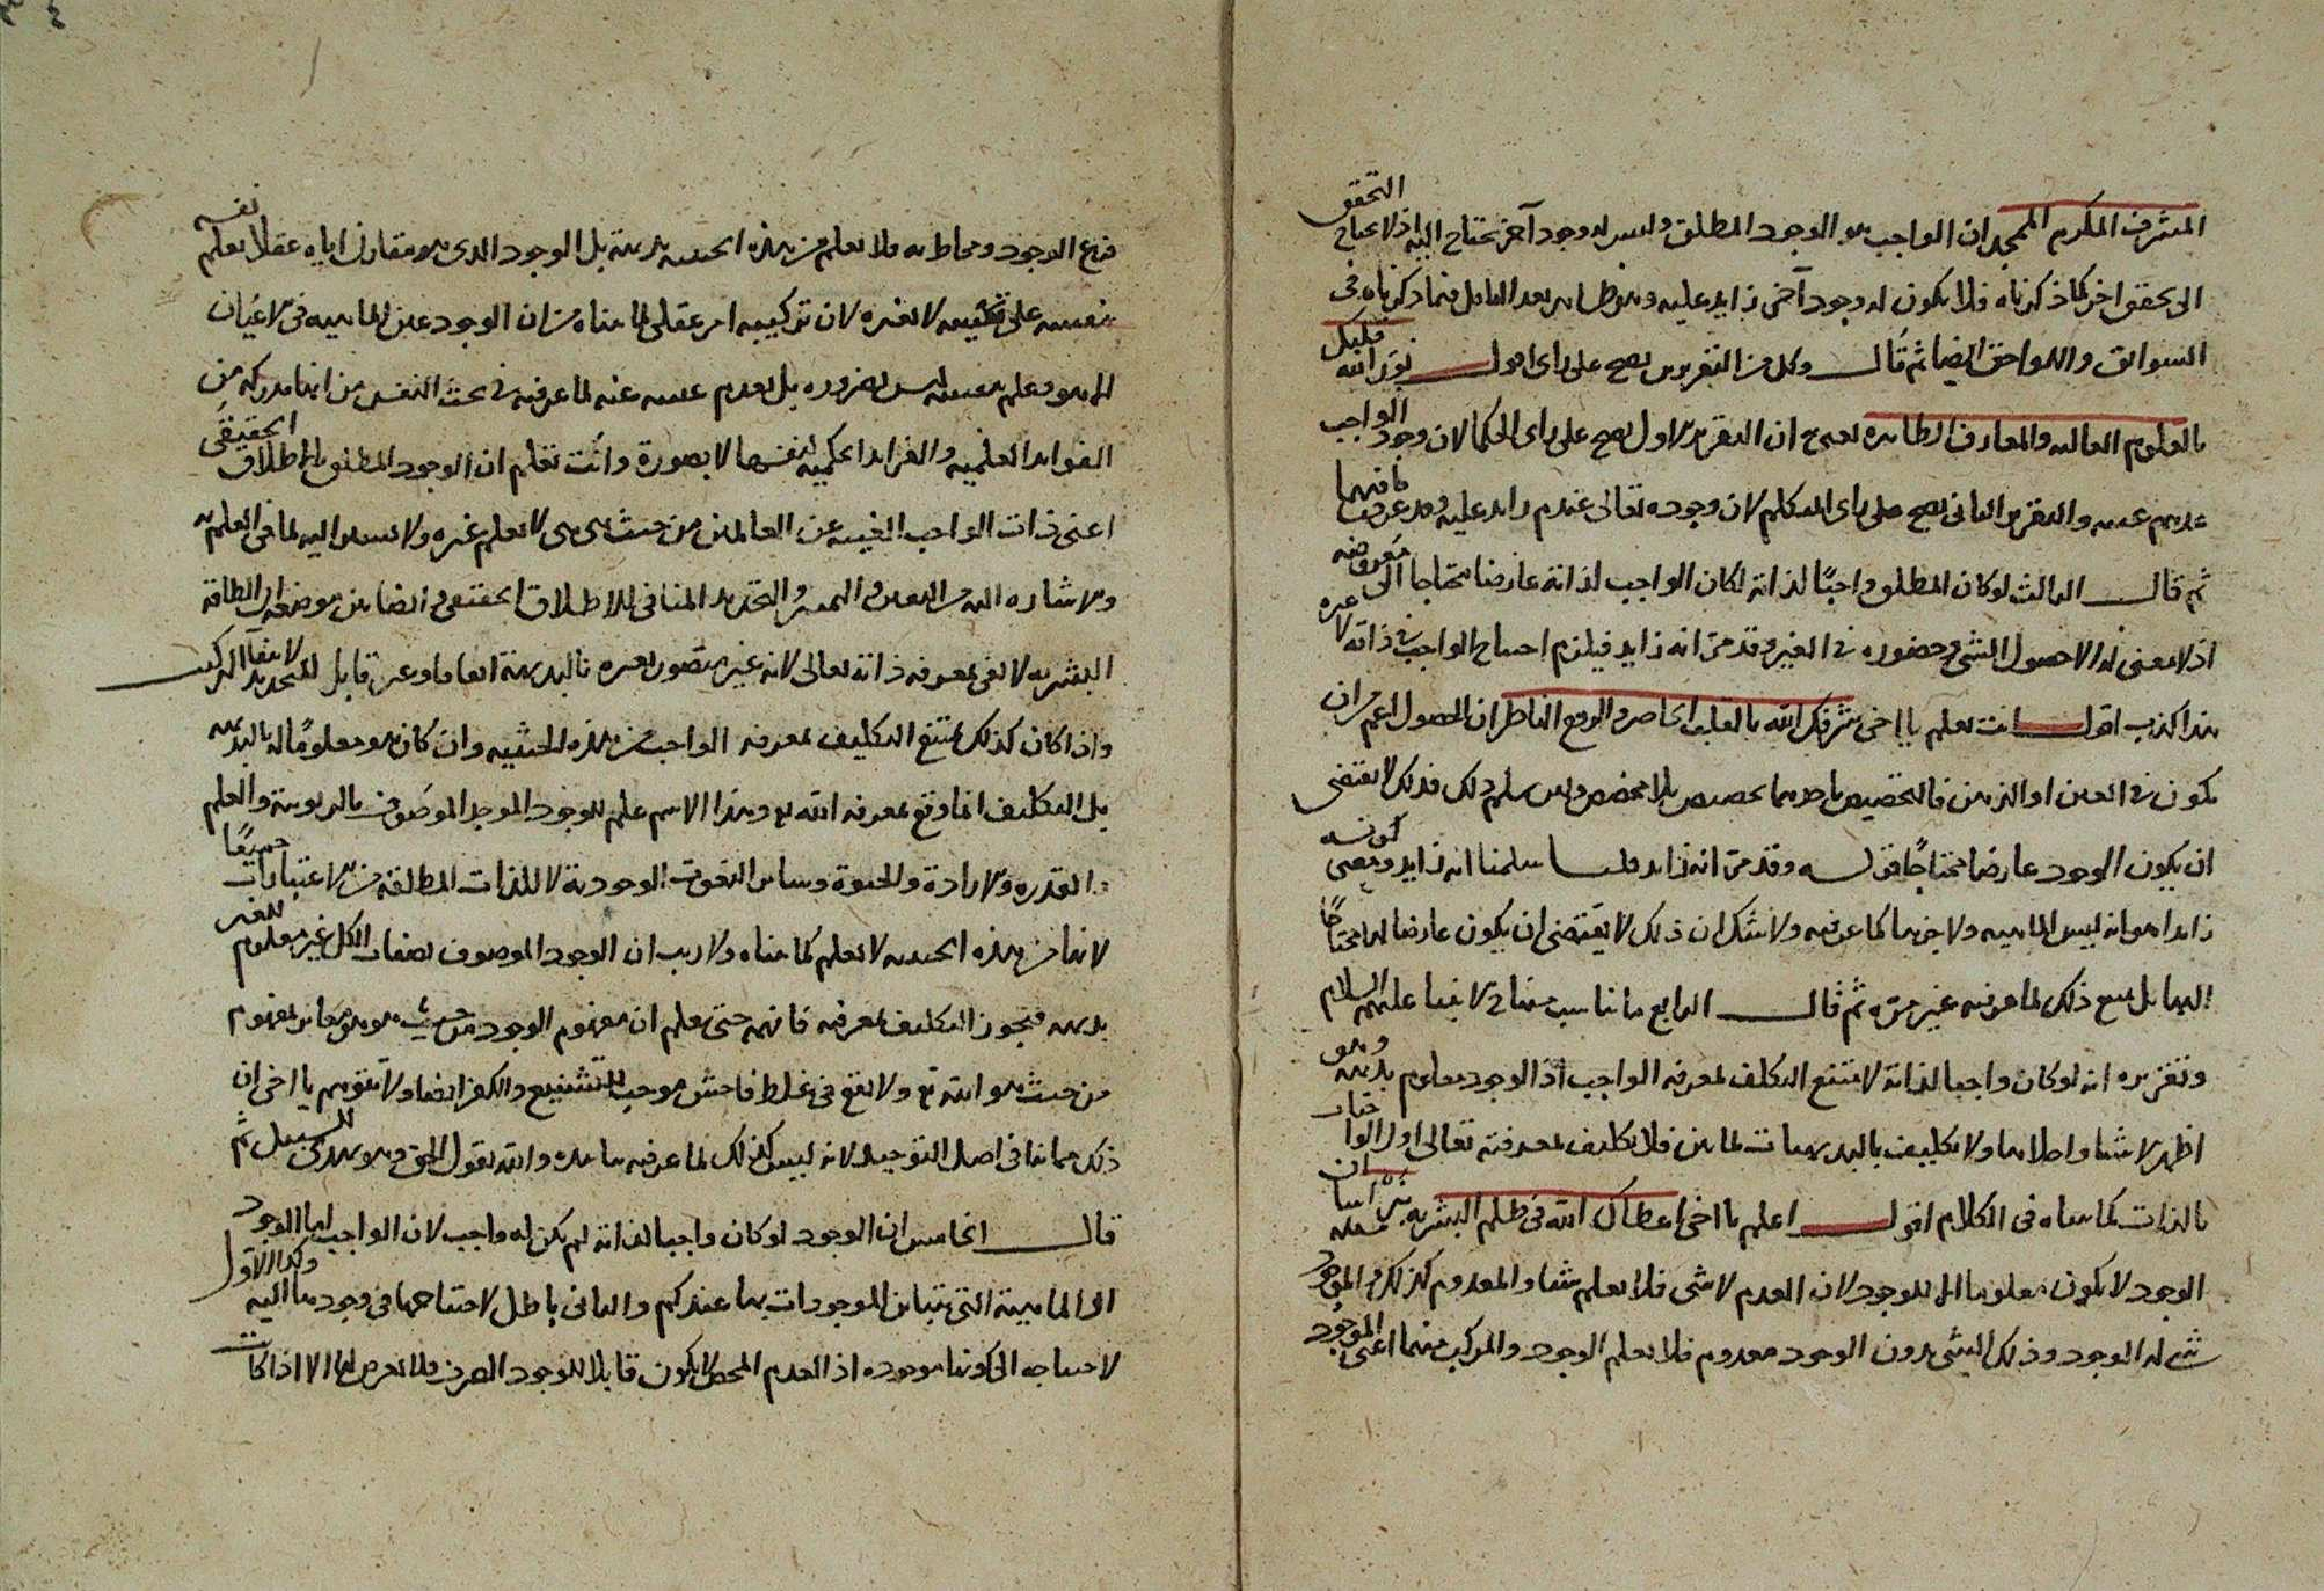 المشرف المكرم الممجد ان الواجب هو الوجود المطلق وليس له وجود آخر يحتاج اليه اذ لا يحتاج التحقق
الى تحقق اخر كما ذكرناه فلا يكون له وجود آخر زايد عليه وهو ظاهر بعد التامل فيما ذكرناه في
السوابق واللواحق ايضا ثم قال وكل من التقريرين يصح على راى اقول نور الله قلبك
بالعلوم العاليه والمعارف الطاهره يعنى ان التقرير الاول يصح على راى الحكما لان وجود الواجب
عندهم عينه والتقرير الثانى يصح على راى المتكلم لان وجوده تعالى عندهم زايد عليه وقد عرفت ما فيهما
ثم قال الثالث لو كان المطلق واجبًا لذاته لكان الواجب لذاته عارضا محتاجا الى معروضه
اذ لا معنى له الا حصول الشى وحضوره في الغير وقد مر انه زايد فيلزم احتياج الواجب في ذاته لا غيره
هذا كذب اقول انت تعلم يا اخى شرفك الله بالقلب الحاضر والروح الناظر ان الحصول اعم من ان
يكون في العين او الذهن فالتخصيص باحدهما تخصيص بلا مخصص ولئن سلم ذلك فذلك لا يقتضى
ان يكون الوجود عارضا محتاجًا قوله وقد مر انه زايد قلنا سلمنا انه زايد ومعنى كونه
زايدا هو انه ليس الماهيه ولا جزءها كما عرفته ولا شك ان ذلك لا يقتضى ان يكون عارضا لها محتاجًا
اليها بل يمنع ذلك لما عرفته غير مرة ثم قال الرابع ما يناسب منهاج الانبيا عليهم السلام
وتقريره انه لو كان واجبا لذاته لامتنع التكلف لمعرفه الواجب اذ الوجود معلوم بديهه وهو
اظهر الاشيا واجلاها ولا تكليف بالبديهيات لما بين فلا تكليف لمعرفته تعالى اول الواجبات
بالذات كما بيناه فى الكلام اقول اعلم يا اخى اعطاك الله فى ظلم البشريه ان
الوجود لا يكون معلوما الا للوجود لان العدم لا شى فلا يعلم شيئا والمعدوم كذلك والموجود
شى له الوجود وذلك الشى بدون الوجود معدوم فلا يعلم الوجود والمركب منهما اعنى الموجود
فرع الوجود ومحاط به فلا يعلم من هذه الحيثيه بديهة بل الوجود الذى هو مقارن اياه عقلا يعلم نفسه
بنفسه على لا بغيره لان تركيبه امر عقلى لما بيناه من ان الوجود عين الماهيه في الاعيان
الفوايد العلميه والفرايد الحكميه لنفسها لا بصورة وانت تعلم ان الوجود المطلق بالاطلاق الحقيقى
اعنى ذات الواجب الغنيه عن العالمين من حيث هى هى لا يعلم غيره ولا يستند اليه لما فى العلم به
والاشاره اليه من التعين والتميز والتحديد المنافى للاطلاق الحقيقى وايضا بين موضعه ان الطاقه
البشريه لا تفى بمعرفه ذاته تعالى لانه غير متصور بغيره بالبديهة اتفاقا وغير قابل للتحديد لانتفا التركيب
واذا كان كذلك يمتنع التكليف لمعرفه الواجب من هذه الحيثيه وان كان هو معلومًا له بالبديهه
بل التكليف انما وقع لمعرفه الله تع وهذا الاسم علم للوجود الموجد الموصوف بالربوبية والعلم
والقدره والارادة والحيوة وساير النعوت الوجودية لا للذات المطلقة من الاعتبارات جميعًا
لانها من هذه الحيثيه لا تعلم كما بيناه ولا ريب ان الوجود الموصوف بصفات الكل غير معلوم للغير
بديهه فيجوز التكليف لمعرفته فافهمه حتى تعلم ان مفهوم الوجود من حيث هو هو مغاير لمفهوم
من حيث هو الله تع ولا تقع فى غلط فاحش موجب للتشنيع والكفر ايضا ولا تتوهم يا اخى ان
ذلك مما ينافى اصل التوحيد لانه ليس كذلك لما عرفته والله يقول الحق وهو يهدى السبيل ثم
قال الخامس ان الوجود لو كان واجبا لذاته لم يكن له واجب لان الواجب اما الوجود
او الماهية التى تتباين الموجودات بها عندكم والثانى باطل لاحتياجها فى وجودها اليه وكذا الاول
لاحتياجه الى كونها موجوده اذ العدم المحض لا يكون قابلا للوجود الصرف فلا يعرض لها الا اذا كانت